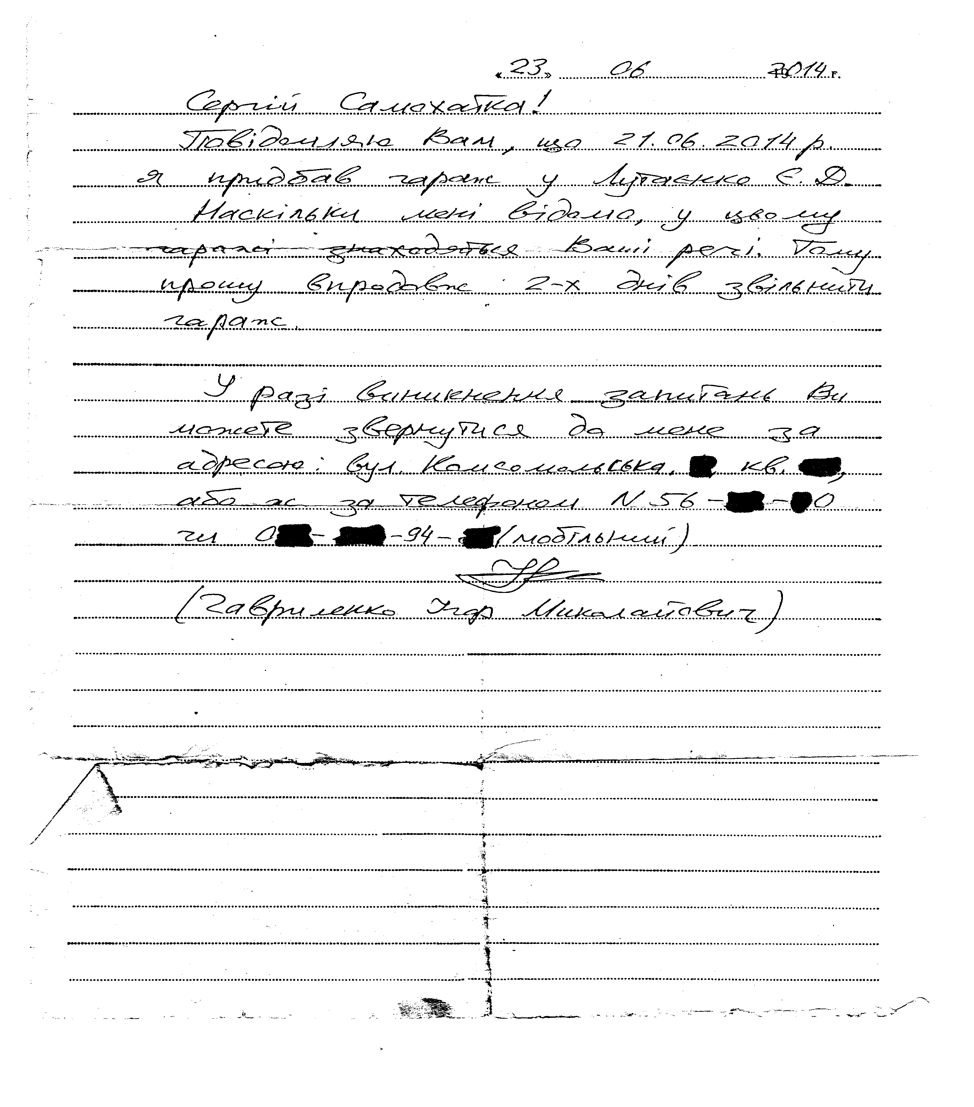 «23» 06 2014 г.
Сергій Самохатка!
Повідомляю Вам, що 21.06.2014 р.
я придбав гараж у Лутаєнко Є. Д.
Наскільки мені відомо, у цьому
гаражі знаходяться Ваші речі. Тому
прошу впродовж 2-х днів звільнити
гараж.
У разі виникнення запитань Ви
можете звернутися до мене за
адресою: вул. Комсомольська, кв. ,
або ж за телефоном N 56- - 0
чи 0 - -94- (мобільний)
(Гавриленко Ігор Миколайович)